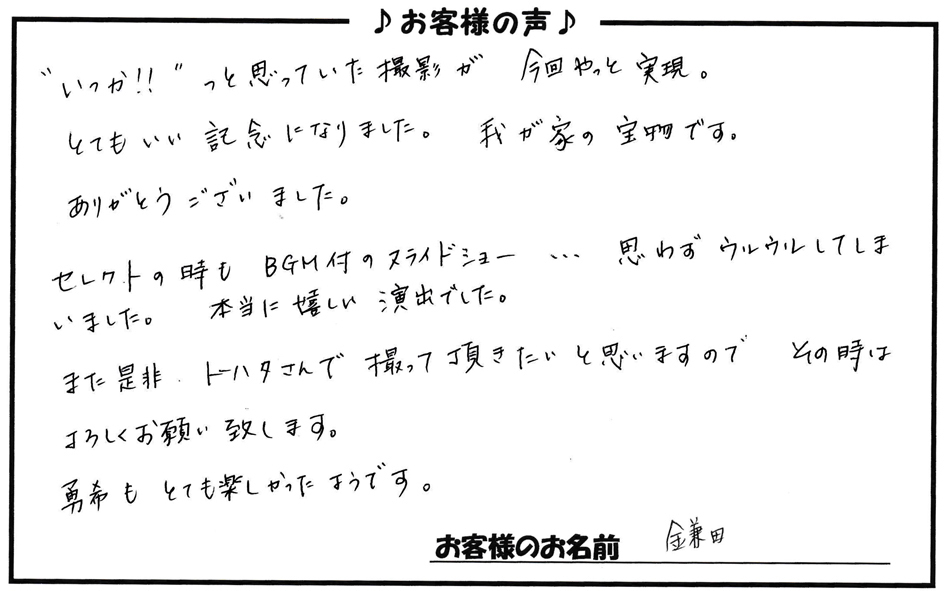 ♪お客様の声♪
"いつか!!" っと思っていた撮影が 今回やっと実現。
とてもいい記念になりました。 我が家の宝物です。
ありがとうございました。
セレクトの時も BGM付のスライドショー … 思わずウルウルしてしま
いました。 本当に嬉しい演出でした。
また是非、トーハタさんで撮って頂きたいと思いますので その時は
よろしくお願い致します。
勇希もとても楽しかったようです。
お客様のお名前 鎌田